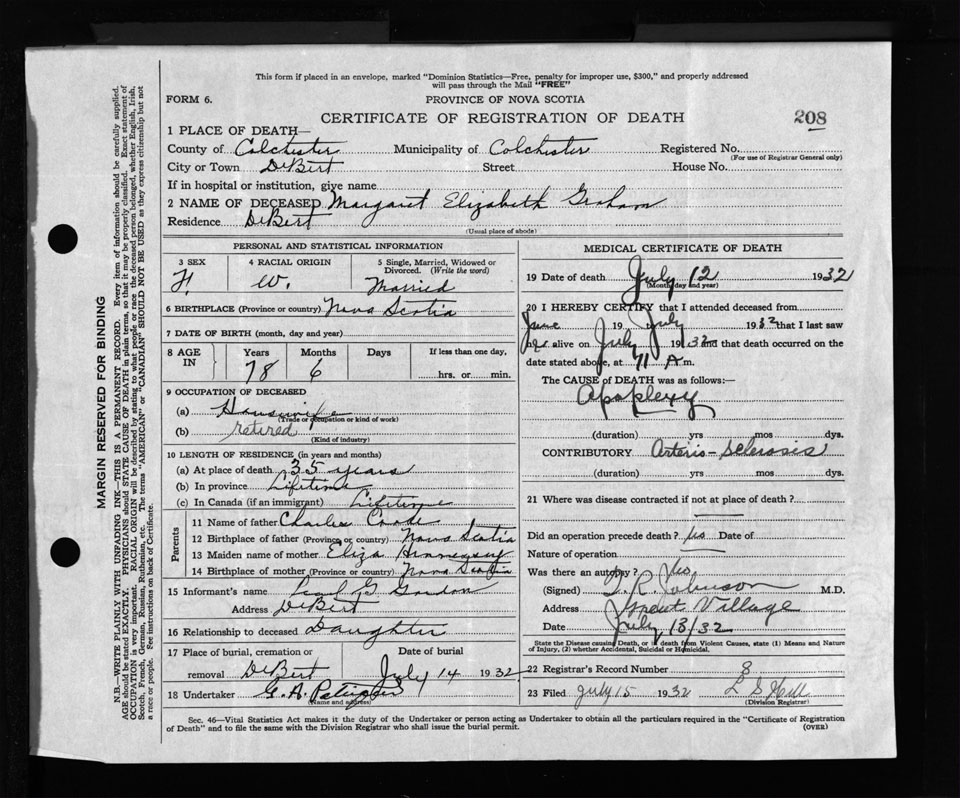 This form if placed in an envelope, marked "Dominion Statistics—Free, penalty for improper use, $300," and properly addressed
will pass through the Mail "FREE"
FORM 6.
PROVINCE OF NOVA SCOTIA
CERTIFICATE OF REGISTRATION OF DEATH
208
1 PLACE OF DEATH—
County of Colchester Municipality of Colchester Registered No.
(For use of Registrar General only)
City or Town DeBert Street House No.
If in hospital or institution, give name
2 NAME OF DECEASED Margaret Elizabeth Graham
Residence DeBert
(Usual place of abode)
PERSONAL AND STATISTICAL INFORMATION
3 SEX 4 RACIAL ORIGIN 5 Single, Married, Widowed or
Divorced. (Write the word)
F. W. Married
6 BIRTHPLACE (Province or country) Nova Scotia
7 DATE OF BIRTH (month, day and year)
8 AGE IN Years Months Days If less than one day,
78 6 hrs. or min.
9 OCCUPATION OF DECEASED
(a) Housewife
(Trade or occupation or kind of work)
(b) retired
(Kind of industry)
10 LENGTH OF RESIDENCE (in years and months)
(a) At place of death 35 years
(b) In province Lifetime
(c) In Canada (if an immigrant) Lifetime
Parents
11 Name of father Charles
12 Birthplace of father (Province or country) Nova Scotia
13 Maiden name of mother Eliza Hennessey
14 Birthplace of mother (Province or country) Nova Scotia
15 Informant's name G. Gordon
Address DeBert
16 Relationship to deceased Daughter
17 Place of burial, cremation or Date of burial
removal DeBert July 14 1932
18 Undertaker G. A.
(Name and address)
MEDICAL CERTIFICATE OF DEATH
19 Date of death July 12 1932
(Month, day and year)
20 I HEREBY CERTIFY that I attended deceased from
June 19 July 1932 that I last saw
her alive on July 1932 and that death occurred on the
date stated above, at 11 A m.
The CAUSE of DEATH was as follows:—
Apoplexy
(duration) yrs mos dys.
CONTRIBUTORY Arterio-Sclerosis
(duration) yrs mos dys.
21 Where was disease contracted if not at place of death?
Did an operation precede death? no Date of
Nature of operation
Was there an autopsy? No
(Signed) T. R. Johnson M.D.
Address Great Village
Date July 13/32
State the Disease causing Death, or if death from Violent Causes, state (1) Means and Nature
of Injury, (2) whether Accidental, Suicidal or Homicidal.
22 Registrar's Record Number 8
23 Filed July 15 1932 L S Hill
(Division Registrar)
Sec. 46—Vital Statistics Act makes it the duty of the Undertaker or person acting as Undertaker to obtain all the particulars required in the "Certificate of Registration
of Death" and to file the same with the Division Registrar who shall issue the burial permit.
(OVER)
MARGIN RESERVED FOR BINDING
N.B.—WRITE PLAINLY WITH UNFADING INK—THIS IS A PERMANENT RECORD. Every item of information should be carefully supplied.
AGE should be stated EXACTLY. PHYSICIANS should STATE CAUSE OF DEATH in plain terms, so that it may be properly classified. Exact statement of
OCCUPATION is very important. RACIAL ORIGIN will be described by stating to what people or race the deceased person belonged, whether English, Irish,
Scotch, French, German, Russian, Ruthenian, etc. The terms "AMERICAN" or "CANADIAN" SHOULD NOT BE USED as they express citizenship but not
a race or people. See instructions on back of Certificate.